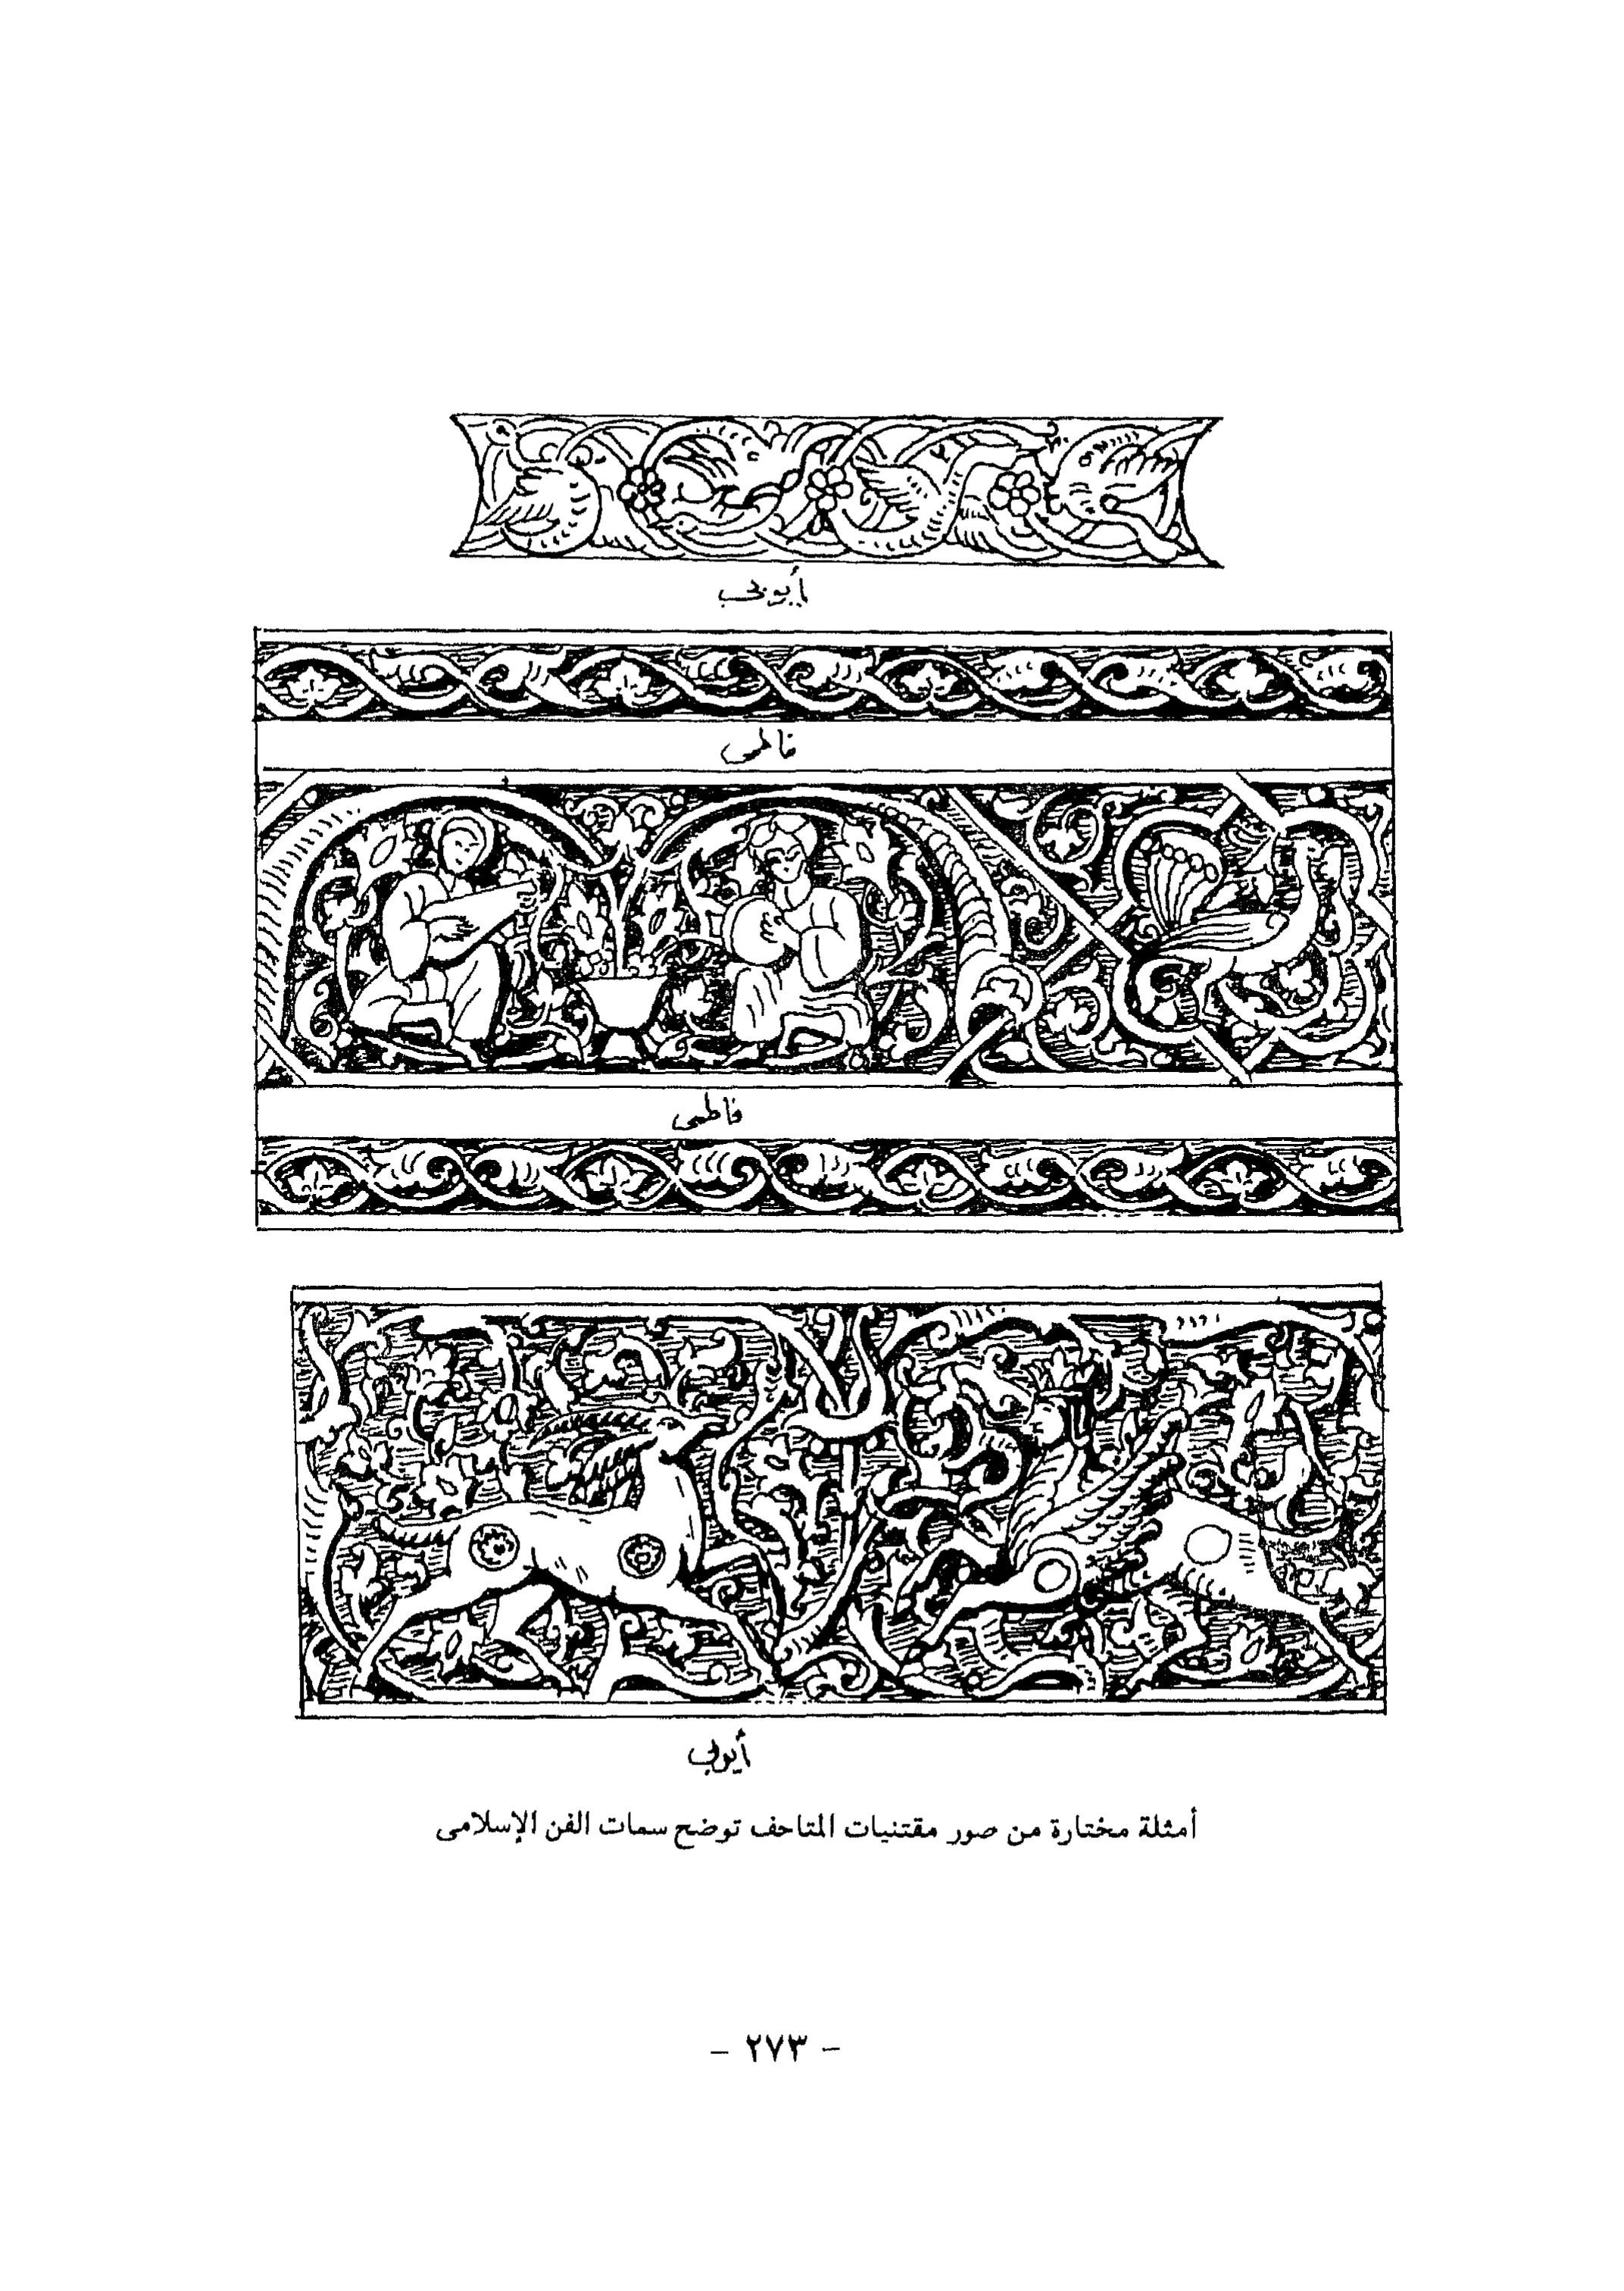 أيوبى
فاطمى
فاطمى
أيوبى
أمثلة مختارة من صور مقتنيات المتاحف توضح سمات الفن الإسلامى
- ٢٧٣ -